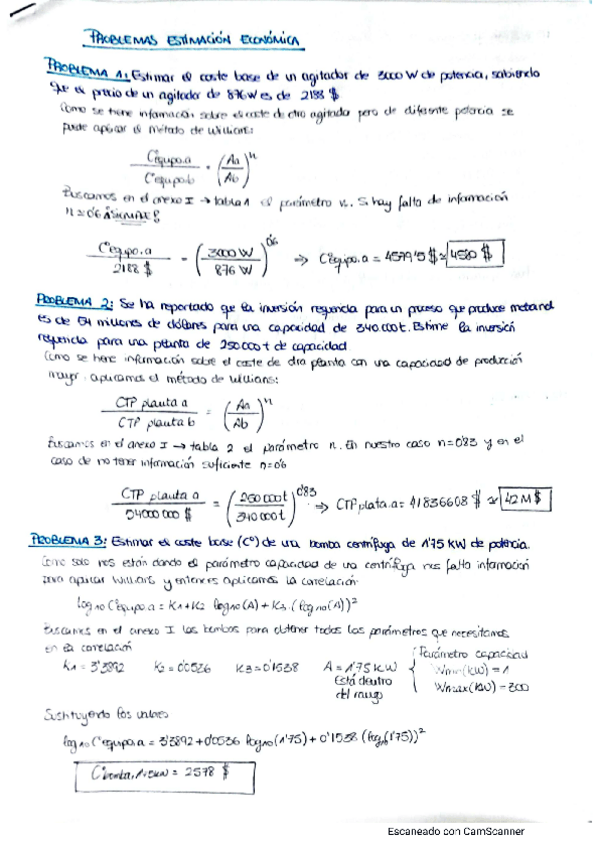 PROBLEMAS ESTIMACIÓN ECONÓMICA
PROBLEMA 1: Estimar el coste base de un agitador de 3000 W de potencia, sabiendo
que el precio de un agitador de 876 W es de 2188 $
Como se tiene información sobre el coste de otro agitador pero de diferente potencia se
puede aplicar el método de Williams:
C°equipo.a / C°equipo.b = (Aa / Ab)^n
Buscamos en el anexo I → tabla 1 el parámetro n. Si hay falta de información
n = 0'6 ¡SIEMPRE!
C°equipo.a / 2188 $ = (3000 W / 876 W)^0'6 → C°equipo.a = 4579'5 $ ≈ 4580 $
PROBLEMA 2: Se ha reportado que la inversión requerida para un proceso que produce metanol
es de 54 millones de dólares para una capacidad de 340.000 t. Estime la inversión
requerida para una planta de 250000 t de capacidad
Como se tiene información sobre el coste de otra planta con una capacidad de producción
mayor, aplicamos el método de Williams:
CTP planta a / CTP planta b = (Aa / Ab)^n
Buscamos en el anexo I → tabla 2 el parámetro n. En nuestro caso n=0'83 y en el
caso de no tener información suficiente n=0'6
CTP planta a / 54000000 $ = (250000t / 340000t)^0'83 → CTP planta.a = 41836608 $ ≈ 42 M$
PROBLEMA 3: Estimar el coste base (C°) de una bomba centrífuga de 1'75 KW de potencia.
Como solo nos están dando el parámetro capacidad de una centrífuga nos falta información
para aplicar Williams y entonces aplicamos la correlación:
log10 C°equipo a = K1+K2 log10(A) + K3·(log10(A))²
Buscamos en el anexo I las bombas para obtener todos los parámetros que necesitamos
en la correlación
K1 = 3'3892 K2 = 0'0536 K3 = 0'1538 A = 1'75 KW
Está dentro
del rango
Parámetro capacidad
Wmin (KW) = 1
Wmax (KW) = 300
Sustituyendo los valores
log10 C°equipo.a = 3'3892 + 0'0536 log10(1'75) + 0'1538 (log10(1'75))²
C°bomba,1'75KW = 2578 $
Escaneado con CamScanner